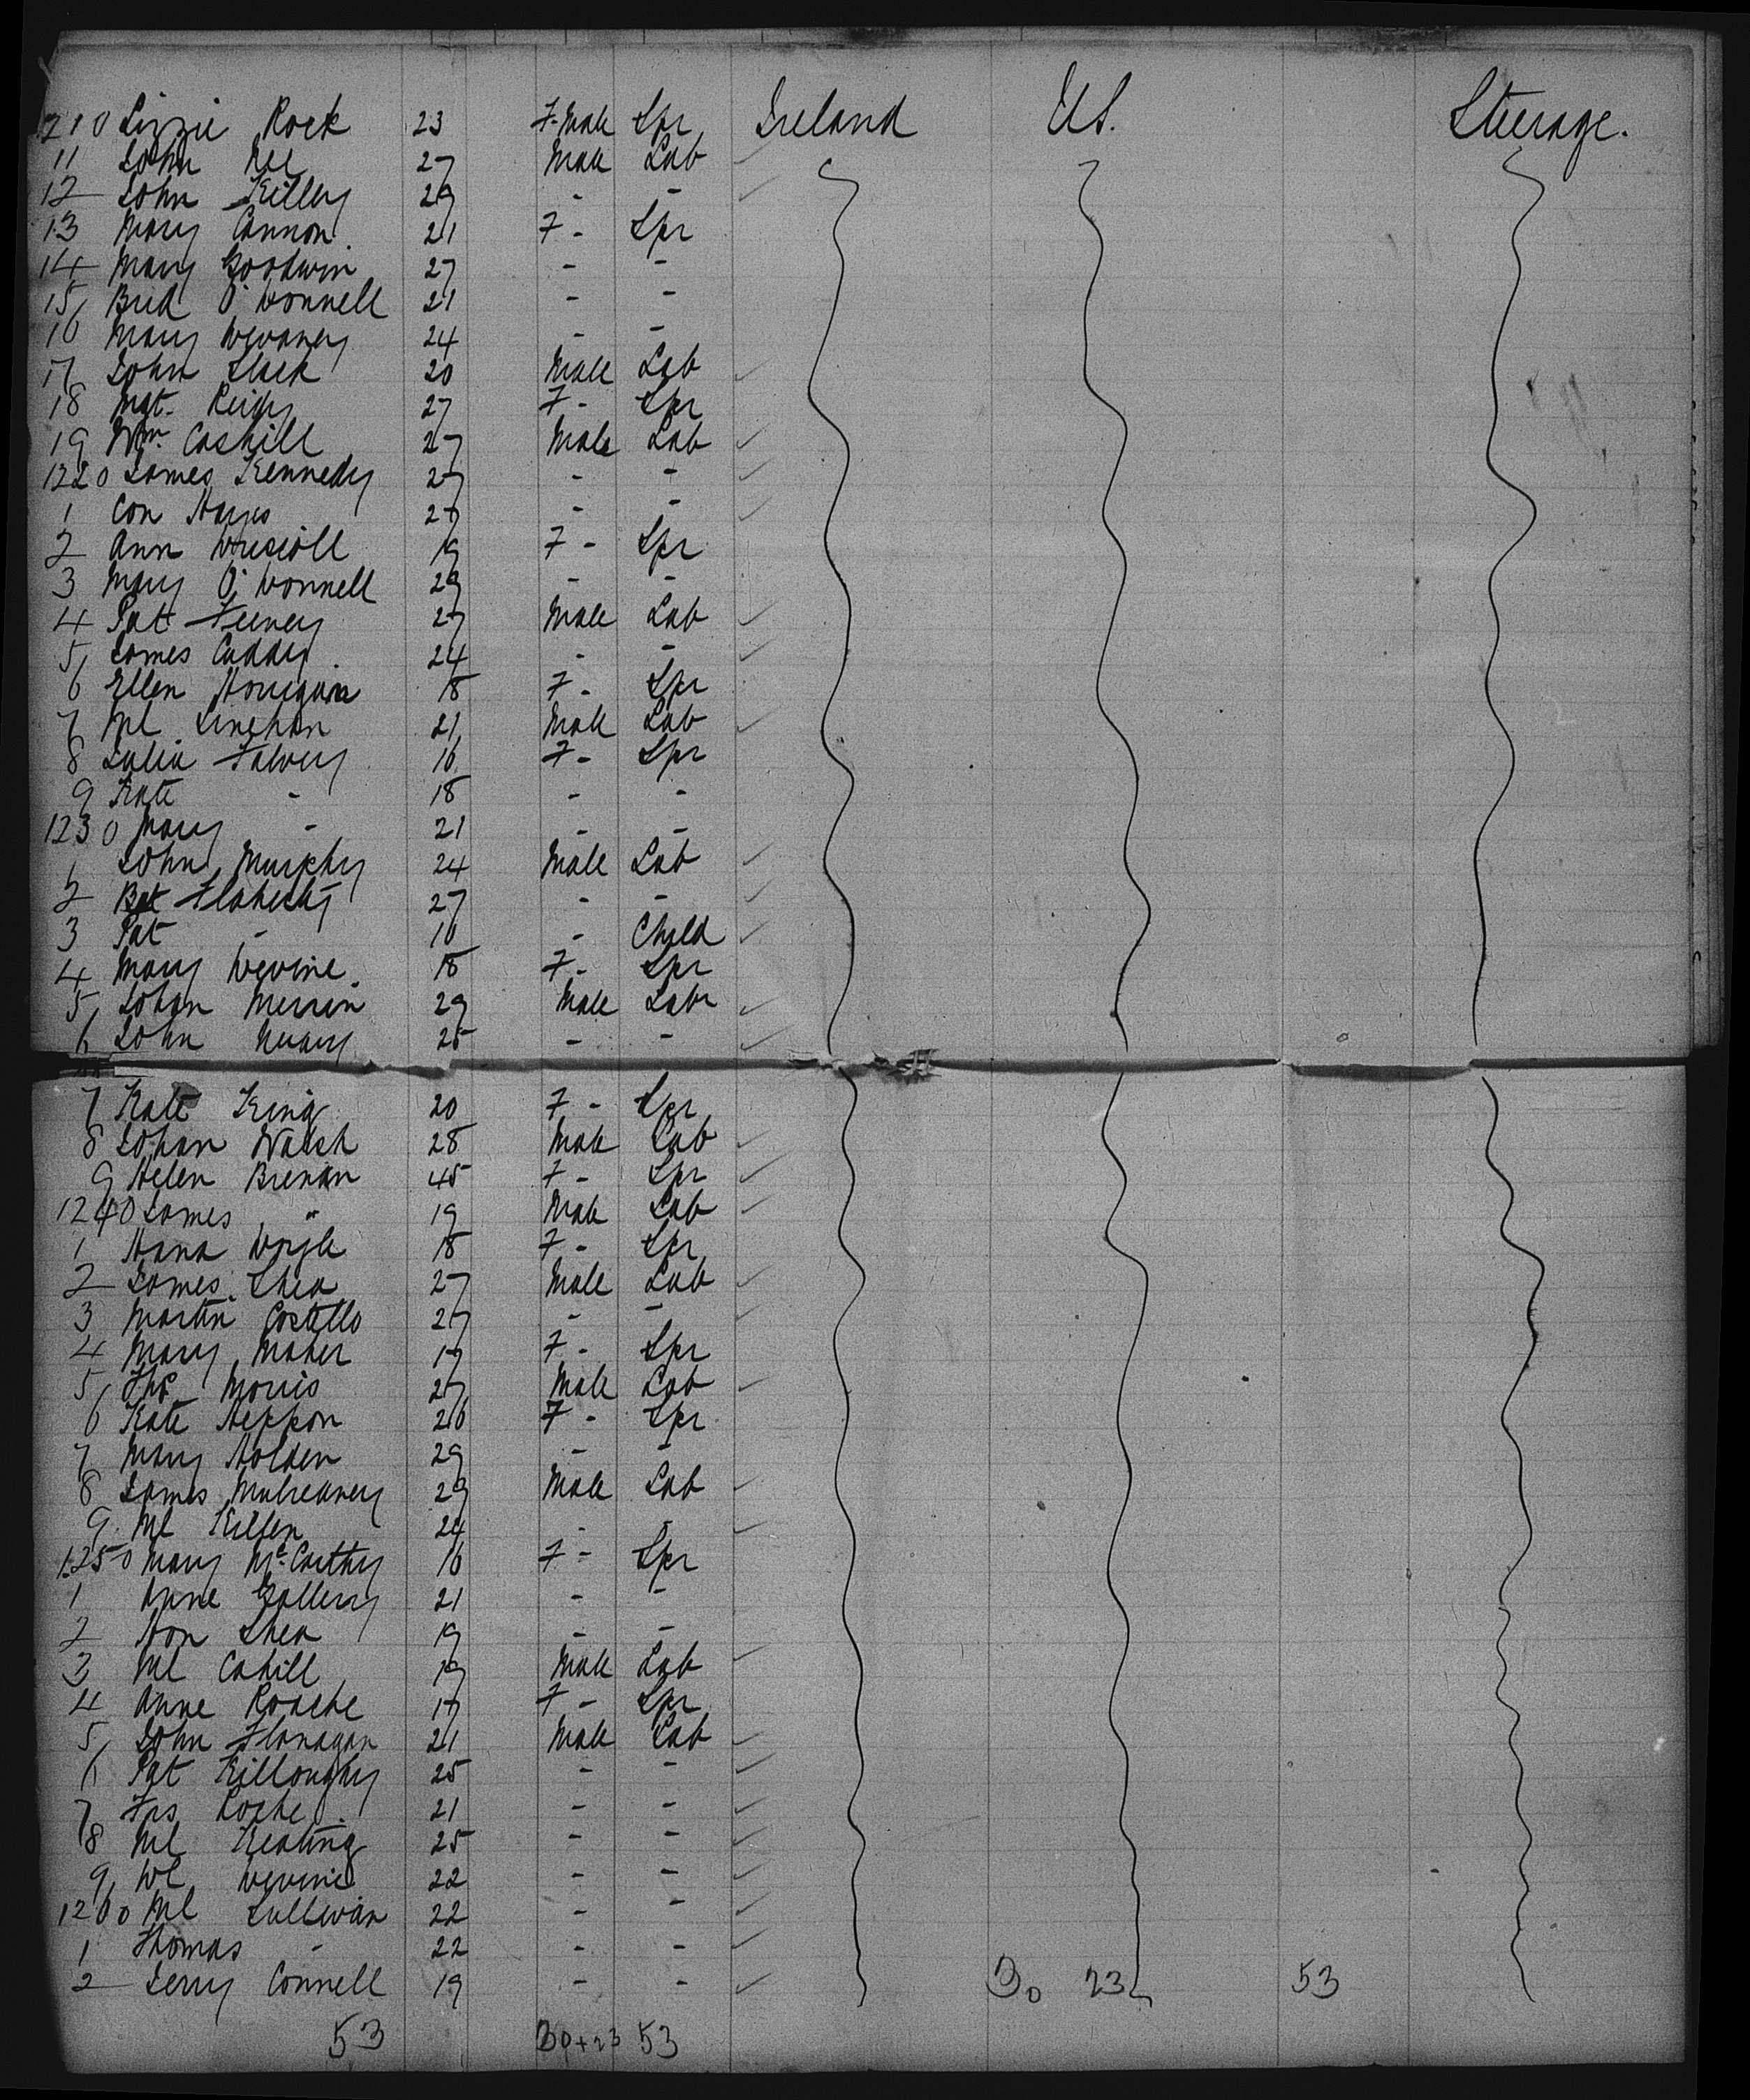 1210 Lizzie Rock 23 F-Male Spr Ireland U.S. Steerage.
11 John Nee 27 Male Lab
12 John Killey 29 - -
13 Mary Cannon 21 F - Spr
14 Mary Goodwin 27 - -
15 Brid O'Donnell 21 - -
16 Mary Devaney 24 - -
17 John Slack 20 Male Lab
18 Mgt. Reidy 27 F - Spr
19 Wm. Cashill 27 Male Lab
1220 James Kennedy 27 - -
1 Con Hayes 27 - -
2 Ann Driscoll 19 F - Spr
3 Mary O'Donnell 29 - -
4 Pat Feeney 27 Male Lab
5 James Cuddy 24 - -
6 Ellen Hourigan 18 F - Spr
7 Ml Linehan 21 Male Lab
8 Julia Falvey 16 F - Spr
9 Kate - 18 - -
1230 Mary - 21 - -
1 John Murphy 24 Male Lab
2 Flaherty 27 - -
3 Pat - 10 - Child
4 Mary Devine 18 F - Spr
5 Johan Merrin 29 Male Labr
6 John 25 - -
7 Kate King 20 F - Spr
8 Johan Walsh 28 Male Lab
9 Helen Brenan 45 F - Spr
1240 James " 19 Male Lab
1 Hana Doyle 18 F - Spr
2 James Shea 27 Male Lab
3 Martin Costello 27 - -
4 Mary Maher 17 F - Spr
5 Ths Morris 27 Male Lab
6 Kate Heppon 26 F - Spr
7 Mary Holden 29 - -
8 James Mulreaney 29 Male Lab
9 Ml Killen 24 - -
1250 Mary McCarthy 16 F - Spr
1 Anne Gallery 21 - -
2 Hon Shea 19 - -
3 Ml Cahill 19 Male Lab
4 Anne Roache 17 F - Spr
5 John Flanagan 21 Male Lab
6 Pat Killoughy 25 - -
7 Fos Roche 21 - -
8 Ml Keating 25 - -
9 Devine 22 - -
1260 Ml Sullivan 22 - -
1 Thomas - 22 - -
2 Jerry Connell 19 - - 30 23 53
53 30+23 53